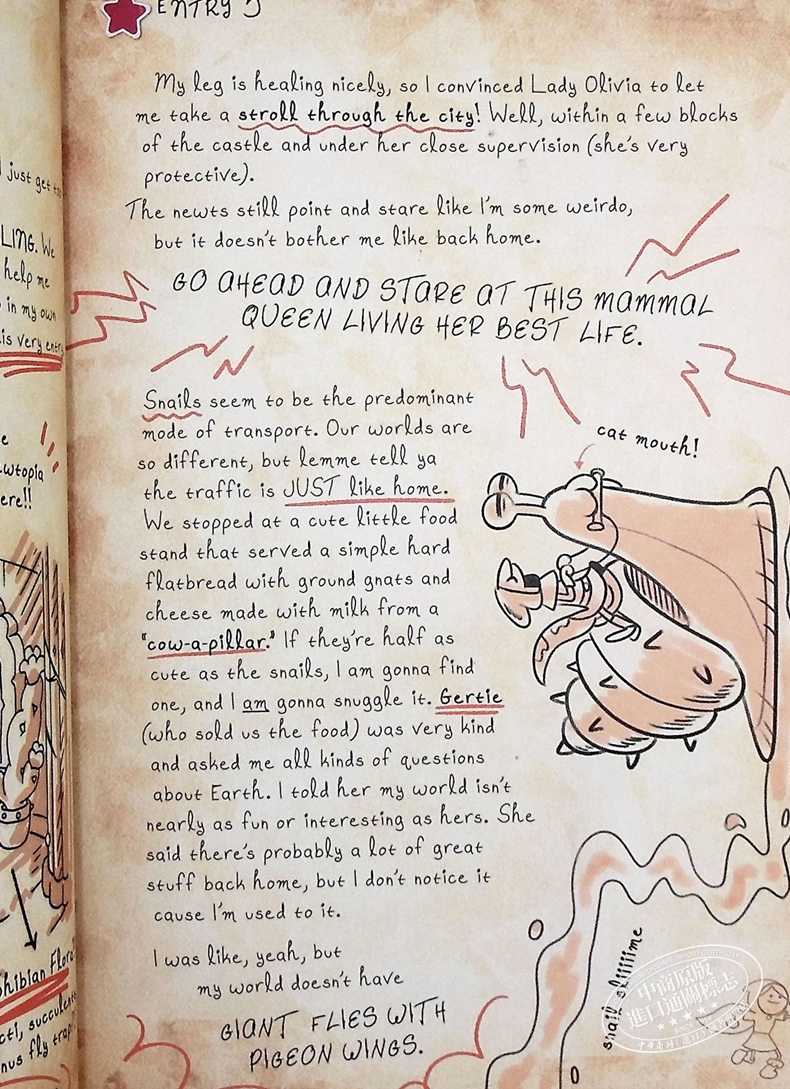 ENTRY 5
My leg is healing nicely, so I convinced Lady Olivia to let
me take a stroll through the city! Well, within a few blocks
of the castle and under her close supervision (she's very
protective).
The newts still point and stare like I'm some weirdo,
but it doesn't bother me like back home.
GO AHEAD AND STARE AT THIS MAMMAL
QUEEN LIVING HER BEST LIFE.
Snails seem to be the predominant
mode of transport. Our worlds are
so different, but lemme tell ya
the traffic is JUST like home.
We stopped at a cute little food
stand that served a simple hard
flatbread with ground gnats and
cheese made with milk from a
"cow-a-pillar." If they're half as
cute as the snails, I am gonna find
one, and I am gonna snuggle it. Gertie
(who sold us the food) was very kind
and asked me all kinds of questions
about Earth. I told her my world isn't
nearly as fun or interesting as hers. She
said there's probably a lot of great
stuff back home, but I don't notice it
cause I'm used to it.
I was like, yeah, but
my world doesn't have
GIANT FLIES WITH
PIGEON WINGS.
cat mouth!
snail sliiiiime
just get
LING. We
help me
in my own
is very entry
wtopia
ere!!
hibian Flora
succulent
nus fly trap
中商原版
進口通關標志